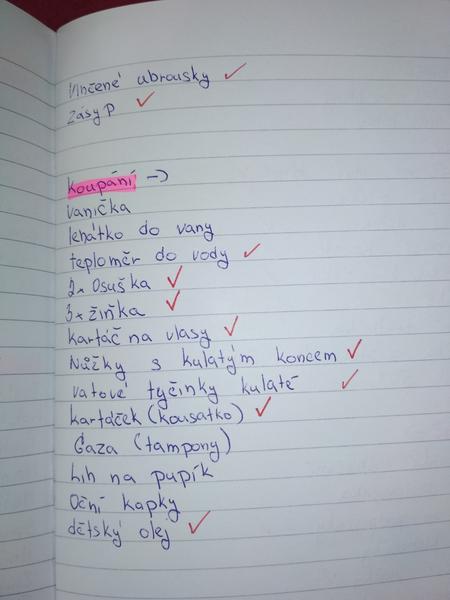 Vlhčené ubrousky ✓
Zásyp ✓
koupání →
vanička
lehátko do vany
teploměr do vody ✓
2x Osuška ✓
3x žiňka ✓
kartáč na vlasy ✓
Nůžky s kulatým koncem ✓
vatové tyčinky kulaté ✓
kartáček (kousatko) ✓
Gaza (tampony)
Lih na pupík
Oční kapky
dětský olej ✓